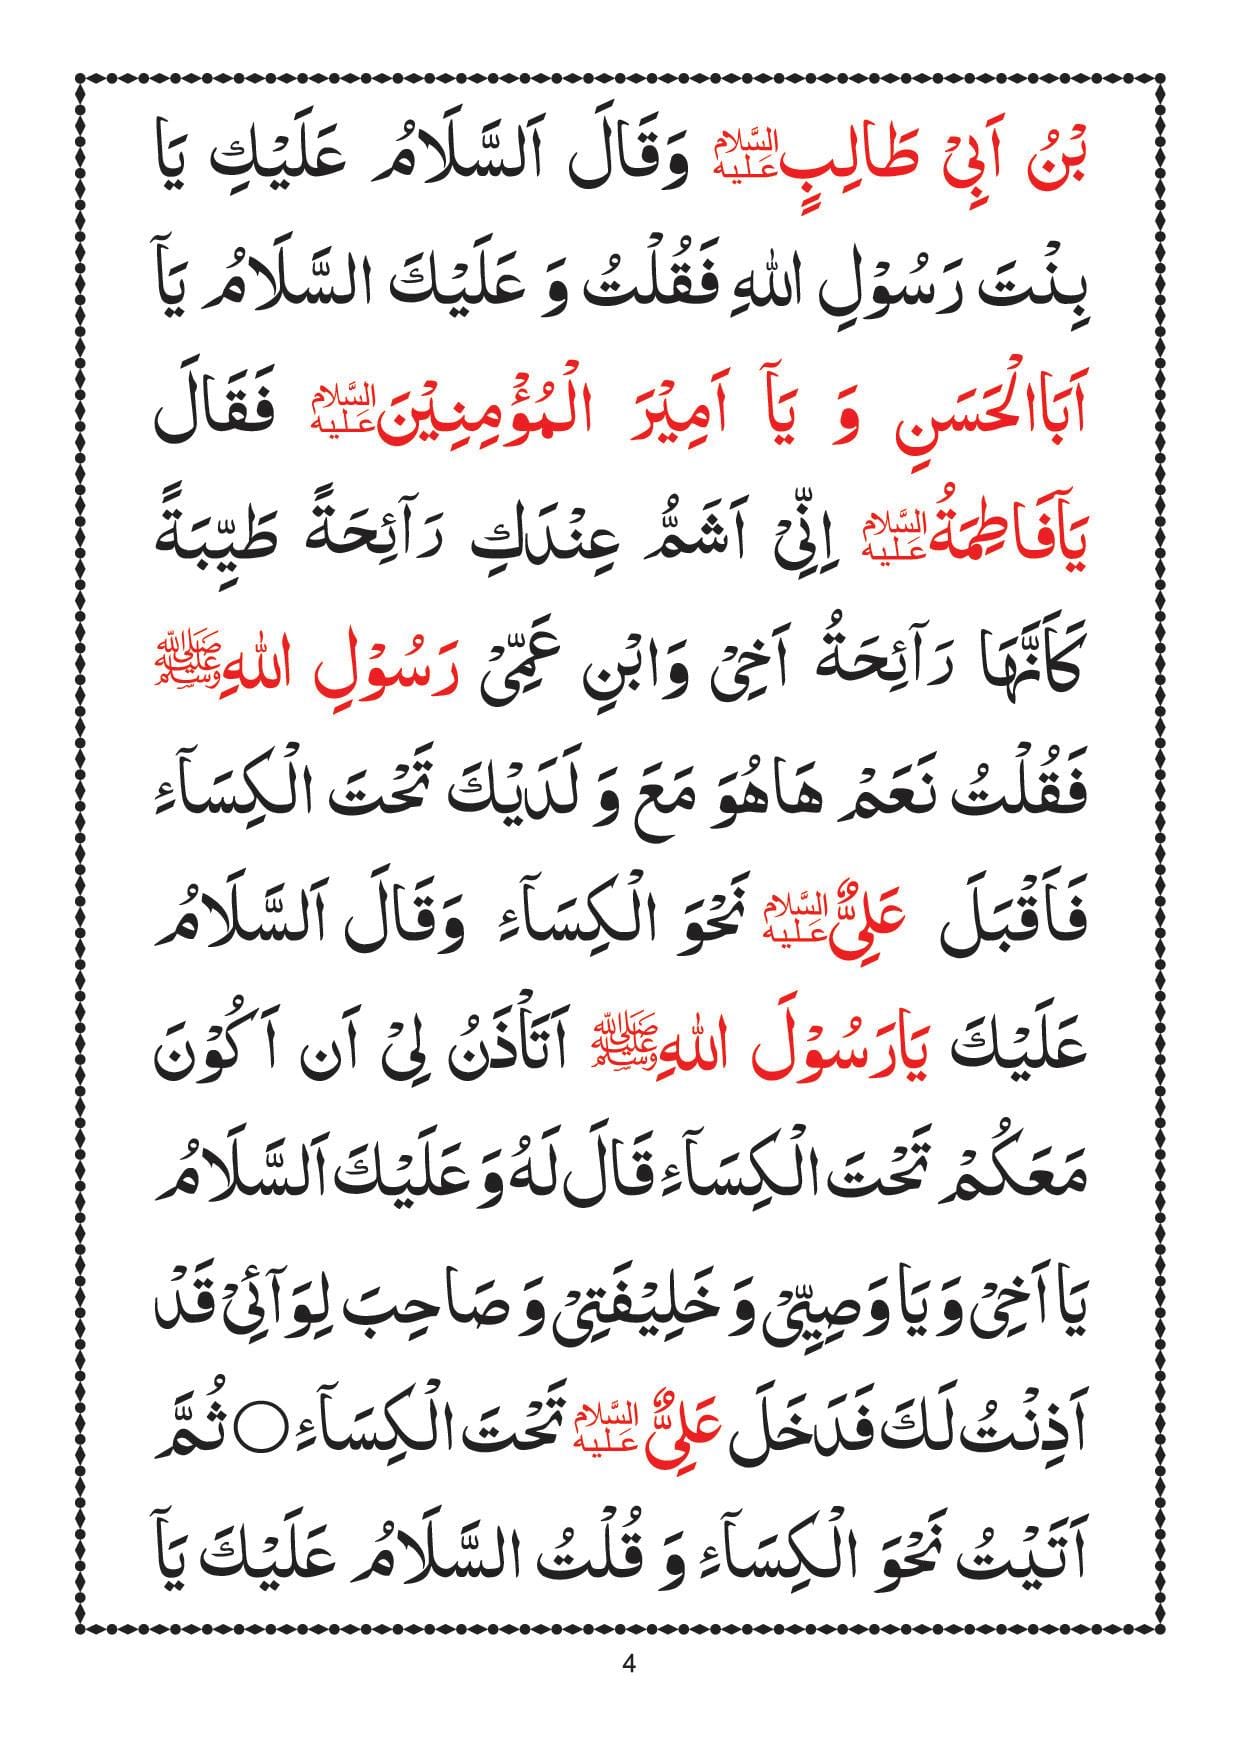 بْنُ اَبِيْ طَالِبٍ عليه السلام وَقَالَ اَلسَّلَامُ عَلَيْكِ يَا
بِنْتَ رَسُوْلِ اللهِ فَقُلْتُ وَ عَلَيْكَ السَّلَامُ يَآ
اَبَاالْحَسَنِ وَ يَآ اَمِيْرَ الْمُؤْمِنِيْنَ عليه السلام فَقَالَ
يَآفَاطِمَةُ عليه السلام اِنِّيْ اَشَمُّ عِنْدَكِ رَآئِحَةً طَيِّبَةً
كَاَنَّهَا رَآئِحَةُ اَخِيْ وَابْنِ عَمِّيْ رَسُوْلِ اللهِ ﷺ
فَقُلْتُ نَعَمْ هَاهُوَ مَعَ وَلَدَيْكَ تَحْتَ الْكِسَآءِ
فَاَقْبَلَ عَلِيٌّ عليه السلام نَحْوَ الْكِسَآءِ وَقَالَ اَلسَّلَامُ
عَلَيْكَ يَارَسُوْلَ اللهِ ﷺ اَتَأْذَنُ لِيْ اَن اَكُوْنَ
مَعَكُمْ تَحْتَ الْكِسَآءِ قَالَ لَهُ وَعَلَيْكَ اَلسَّلَامُ
يَا اَخِيْ وَيَا وَصِيِّيْ وَخَلِيْفَتِيْ وَصَاحِبَ لِوَآئِيْ قَدْ
اَذِنْتُ لَكَ فَدَخَلَ عَلِيٌّ عليه السلام تَحْتَ الْكِسَآءِ○ ثُمَّ
اَتَيْتُ نَحْوَ الْكِسَآءِ وَ قُلْتُ السَّلَامُ عَلَيْكَ يَآ
4